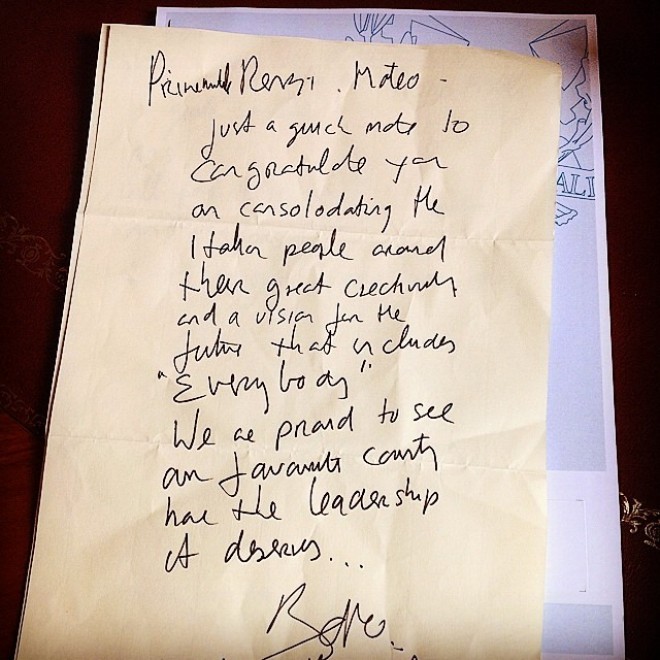 Primeminister Renzi. Mateo -
just a quick note to
congratulate you
on consolodating the
Italian people around
their great creativity
and a vision for the
future that includes
"Everybody"
We are proud to see
our favourite country
have the leadership
it deserves...
Bono.
ALI